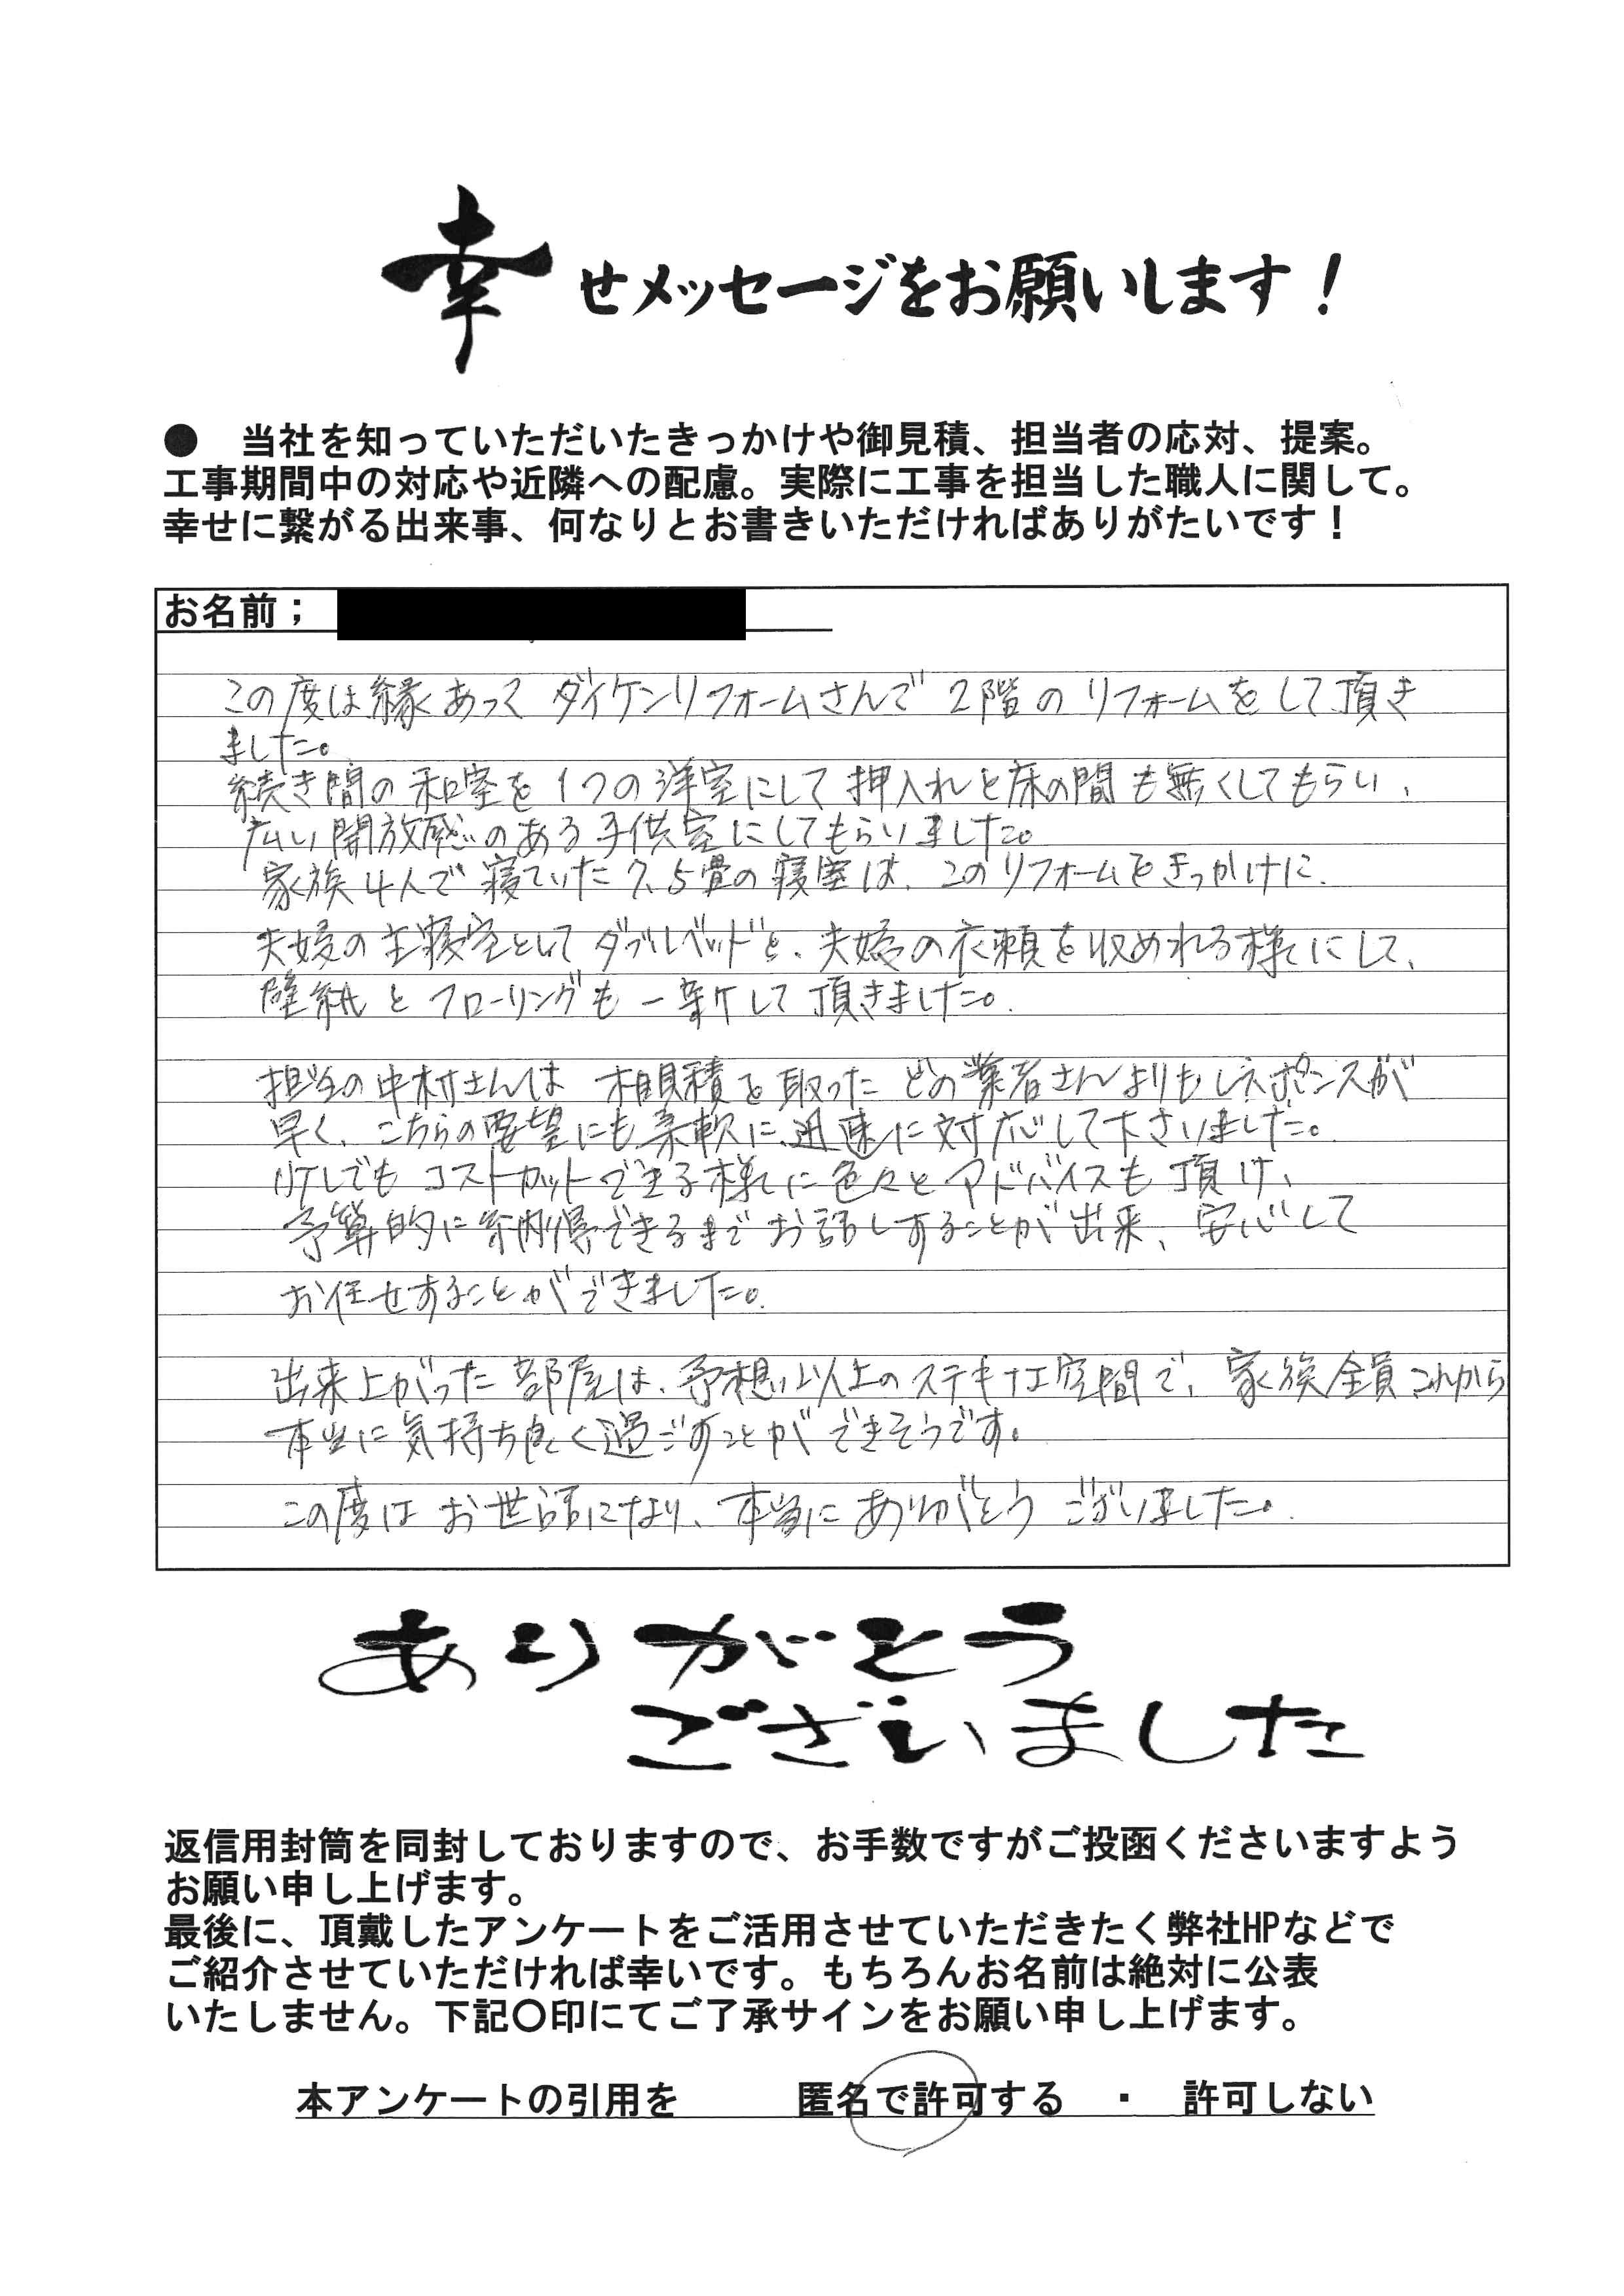 幸せメッセージをお願いします！
●　当社を知っていただいたきっかけや御見積、担当者の応対、提案。
工事期間中の対応や近隣への配慮。実際に工事を担当した職人に関して。
幸せに繋がる出来事、何なりとお書きいただければありがたいです！
お名前；
この度は縁あって ダイケンリフォームさんで 2階の リフォームをして頂き
ました。
続き間の和室を1つの洋室にして押入れと床の間も無くしてもらい、
広い開放感のある子供室にしてもらいました。
家族4人で寝ていた7.5畳の寝室は、このリフォームをきっかけに、
夫婦の主寝室としてダブルベッドと、夫婦の衣類を収めれる様にして、
壁紙とフローリングも一新して頂きました。
担当の中村さんは 相見積を取った どの業者さんよりもレスポンスが
早く、こちらの要望にも柔軟に、迅速に対応して下さいました。
少しでもコストカットできる様に色々とアドバイスも頂け、
予算的に納得できるまでお話しすることが出来、安心して
お任せすることができました。
出来上がった部屋は、予想以上のステキな空間で、家族全員これから
本当に気持ち良く過ごすことができそうです。
この度はお世話になり、本当にありがとうございました。
ありがとう
ございました
返信用封筒を同封しておりますので、お手数ですがご投函くださいますよう
お願い申し上げます。
最後に、頂戴したアンケートをご活用させていただきたく弊社HPなどで
ご紹介させていただければ幸いです。もちろんお名前は絶対に公表
いたしません。下記〇印にてご了承サインをお願い申し上げます。
本アンケートの引用を　　　匿名で許可する　・　許可しない